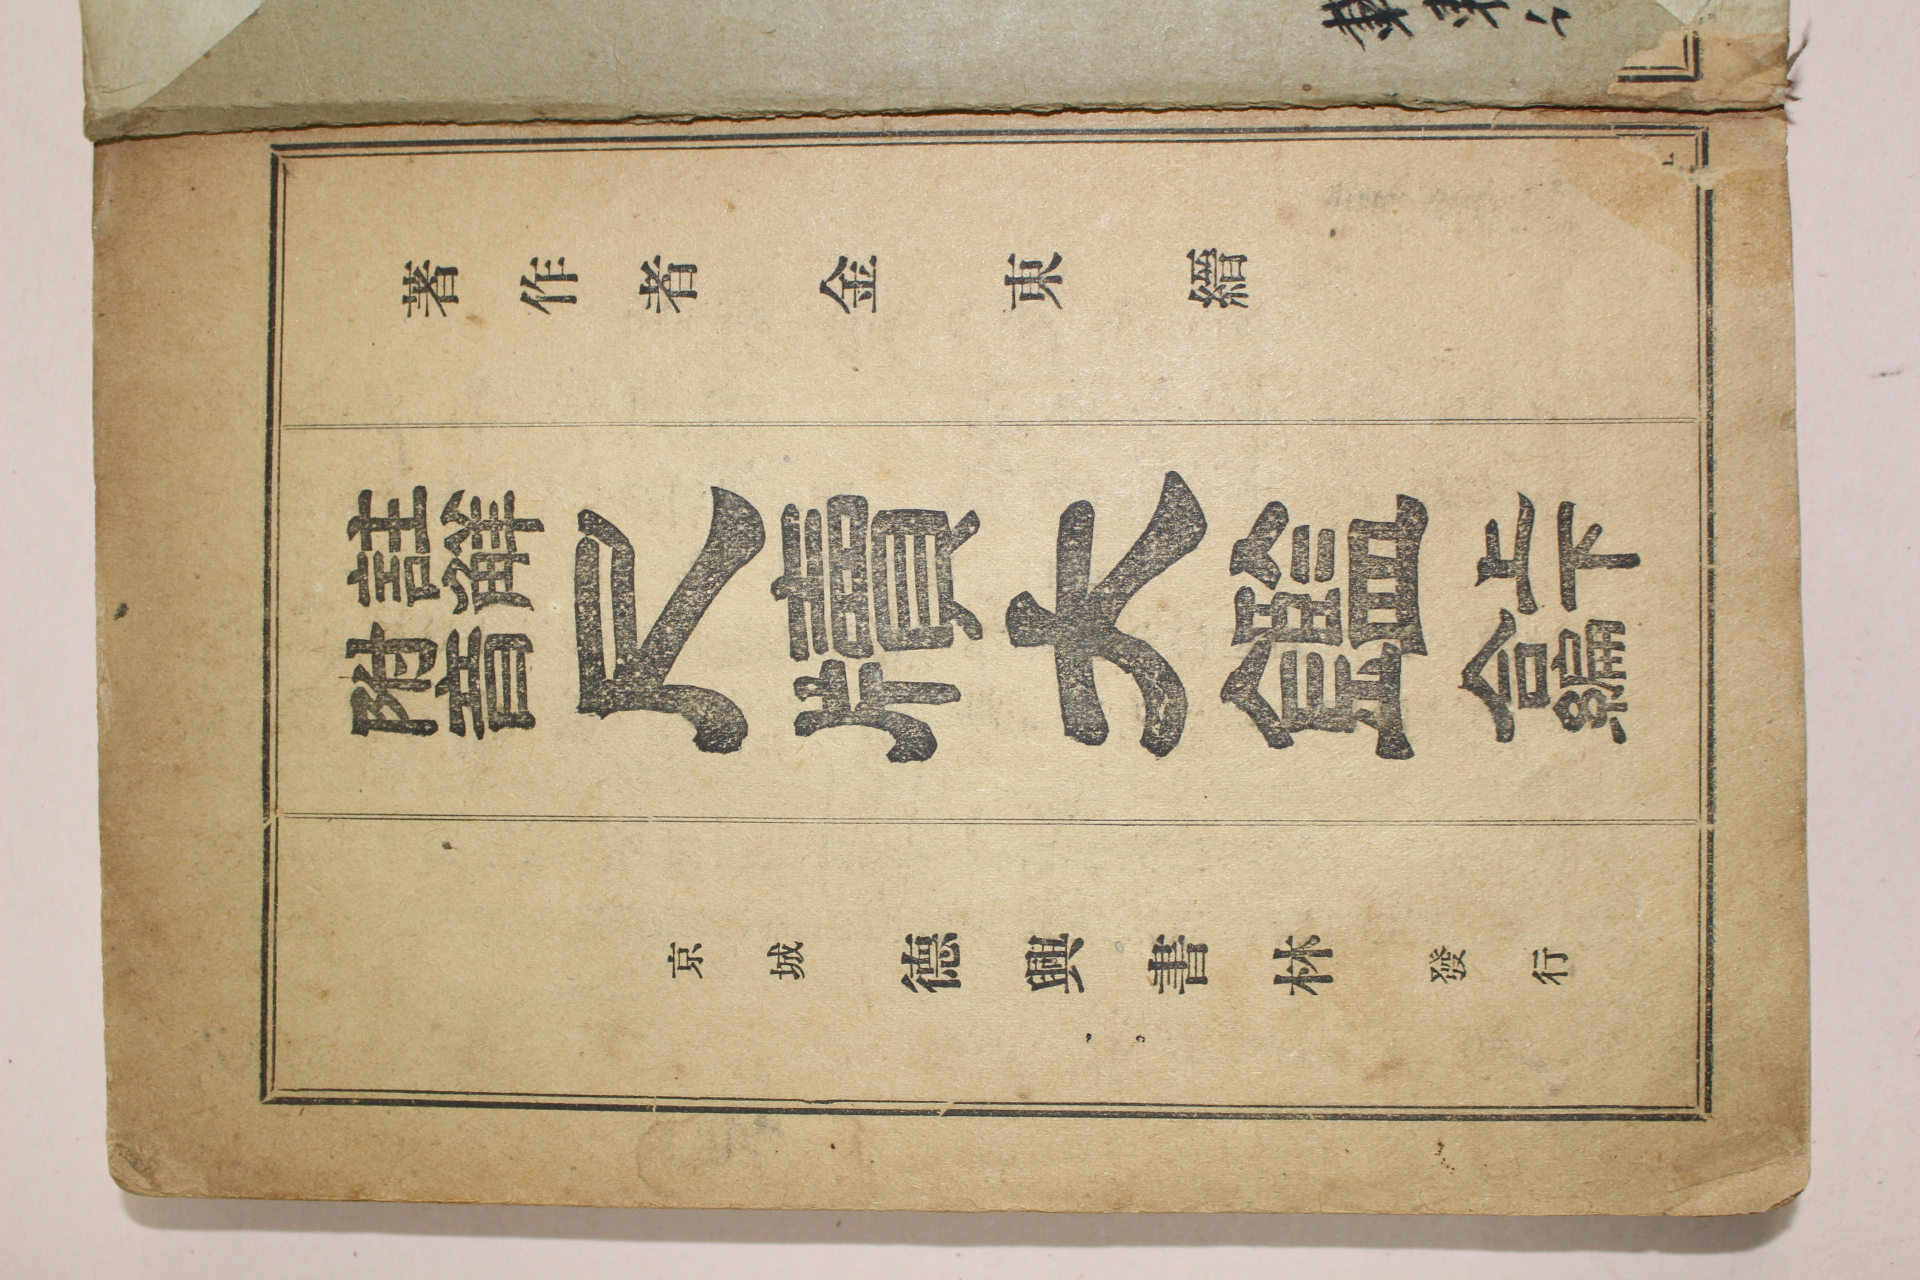 著作者 金東縉
附音註解 尺牘大鑑 上下合編
京城 德興書林 發行